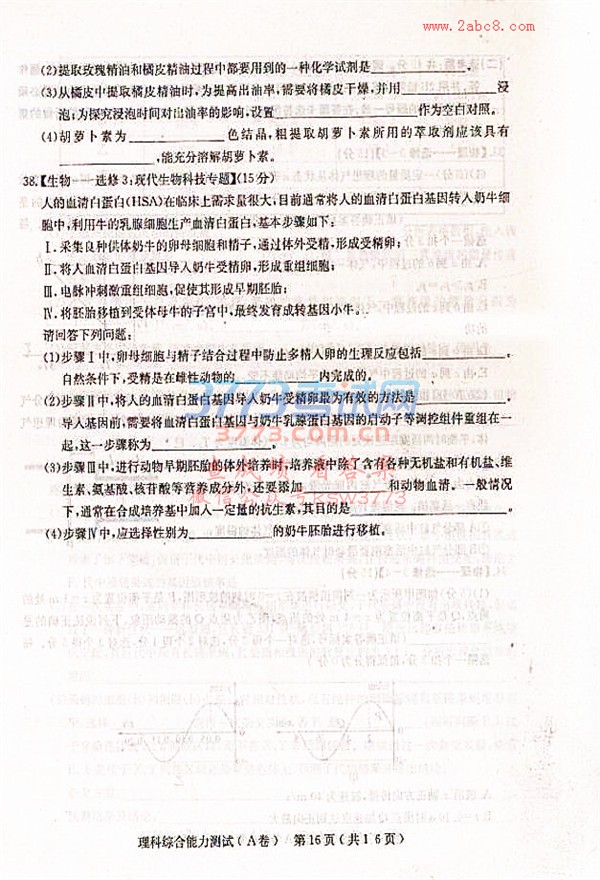 www.2abc8.com
(2)提取玫瑰精油和橘皮精油过程中都要用到的一种化学试剂是__________。
(3)从橘皮中提取橘皮精油时,为提高出油率,需要将橘皮干燥,并用__________浸
泡;为探究浸泡时间对出油率的影响,设置__________作为空白对照。
(4)胡萝卜素为__________色结晶,粗提取胡萝卜素所用的萃取剂应该具有
__________,能充分溶解胡萝卜素。
38.【生物——选修3:现代生物科技专题】(15分)
人的血清白蛋白(HSA)在临床上需求量很大,目前通常将人的血清白蛋白基因转入奶牛细
胞中,利用牛的乳腺细胞生产血清白蛋白,基本步骤如下:
Ⅰ.采集良种供体奶牛的卵母细胞和精子,通过体外受精,形成受精卵;
Ⅱ.将人血清白蛋白基因导入奶牛受精卵,形成重组细胞;
Ⅲ.电脉冲刺激重组细胞,促使其形成早期胚胎;
Ⅳ.将胚胎移植到受体母牛的子宫中,最终发育成转基因小牛。
请回答下列问题:
(1)步骤Ⅰ中,卵母细胞与精子结合过程中防止多精入卵的生理反应包括__________。
自然条件下,受精是在雌性动物的__________内完成的。
(2)步骤Ⅱ中,将人的血清白蛋白基因导入奶牛受精卵最为有效的方法是__________。
导入基因前,需要将血清白蛋白基因与奶牛乳腺蛋白基因的启动子等调控组件重组在一
起,这一步骤称为__________。
(3)步骤Ⅲ中,进行动物早期胚胎的体外培养时,培养液中除了含有各种无机盐和有机盐、维
生素、氨基酸、核苷酸等营养成分外,还要添加__________和动物血清。一般情况
下,通常在合成培养基中加入一定量的抗生素,其目的是__________。
(4)步骤Ⅳ中,应选择性别为__________的奶牛胚胎进行移植。
3773考试网
3773.com.cn
查成绩 看答案
微信公众号ksw3773
理科综合能力测试(A卷) 第16页(共16页)